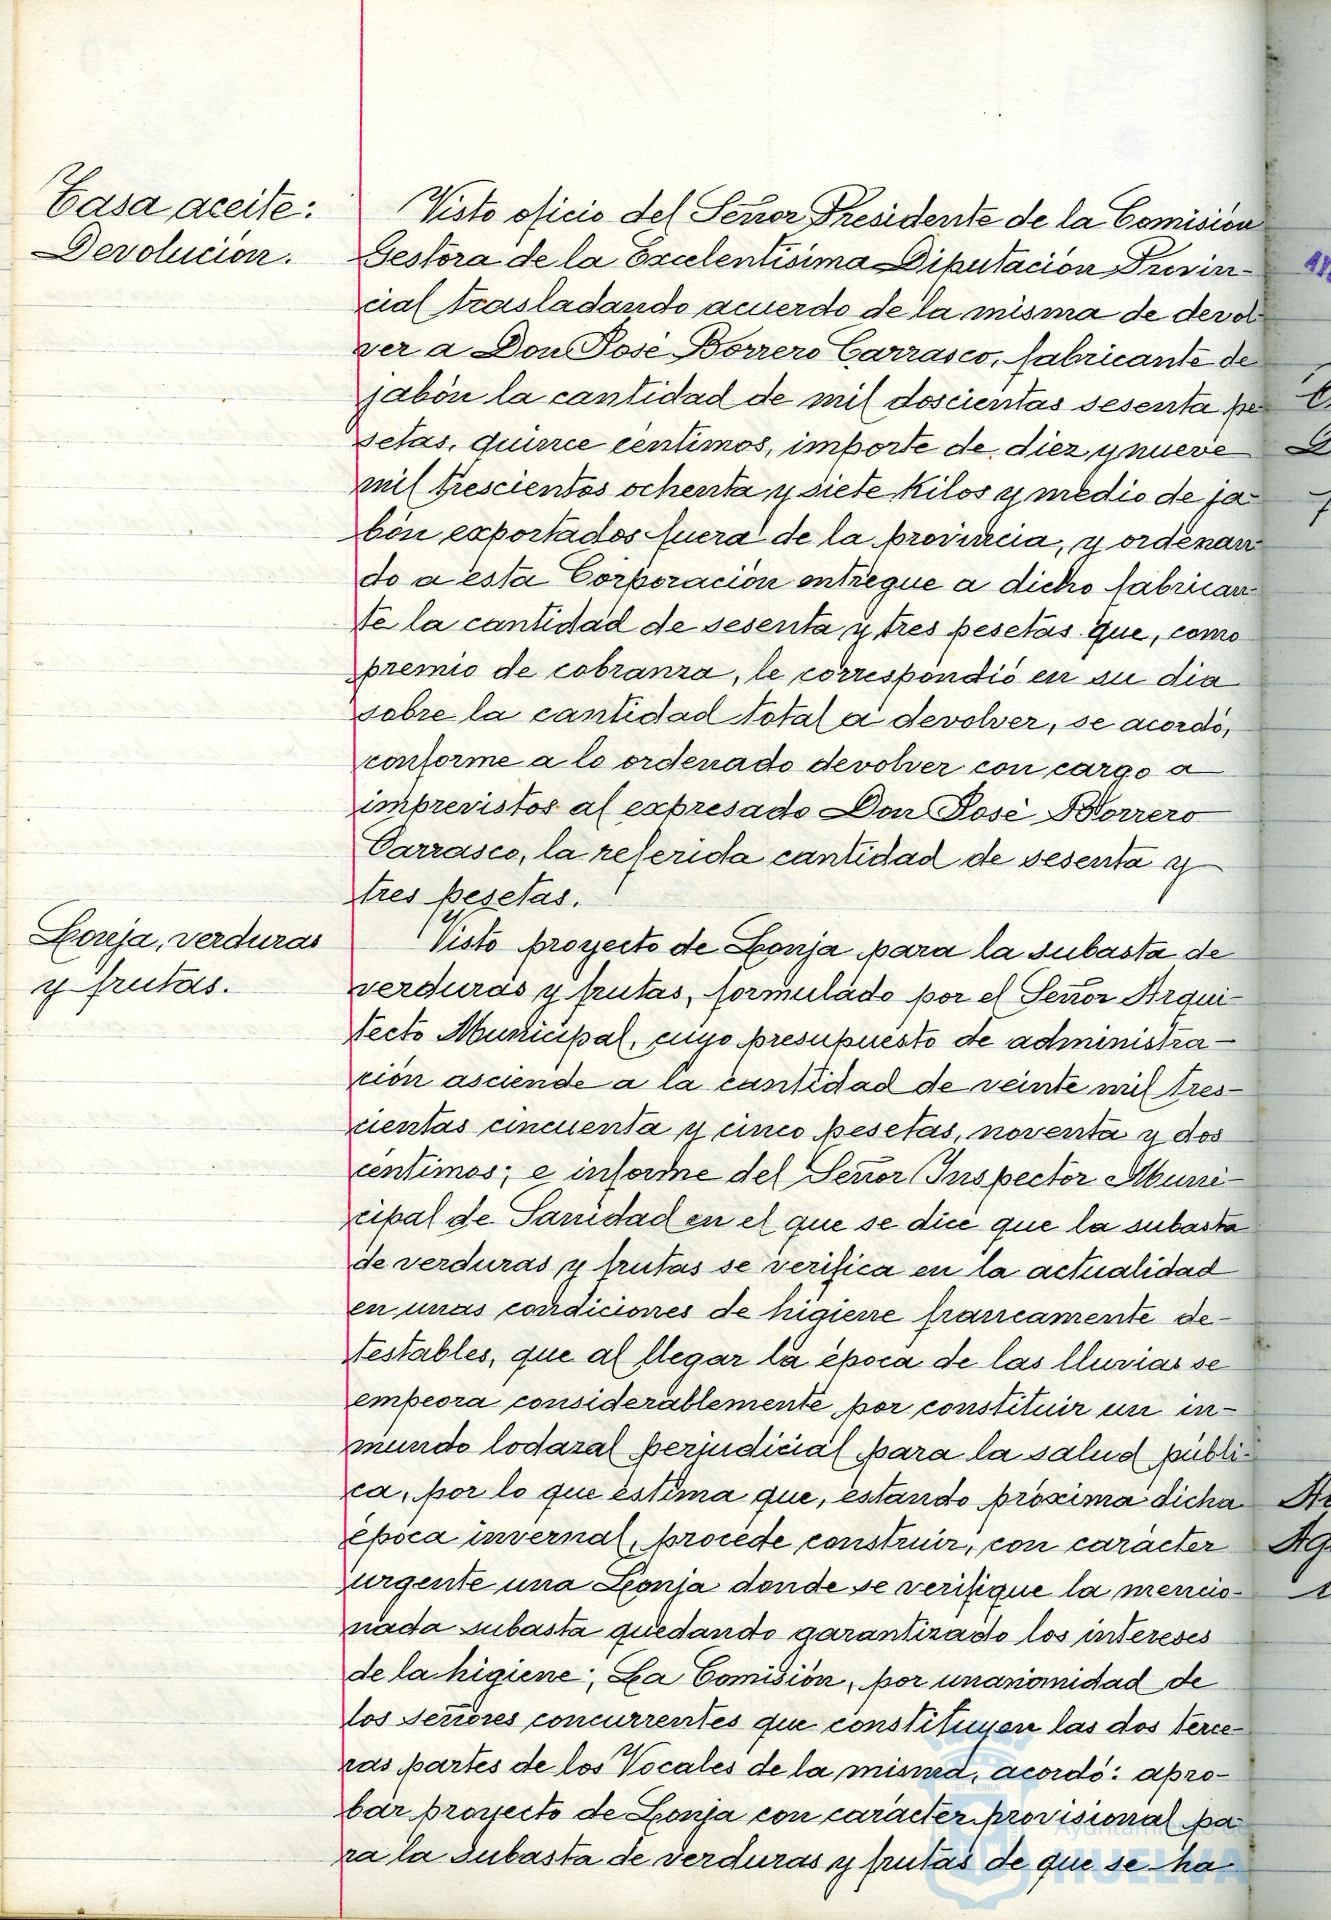 Tasa aceite:
Devolución.
Visto oficio del Señor Presidente de la Comisión
Gestora de la Excelentísima Diputación Provin-
cial trasladando acuerdo de la misma de devol
ver a Don José Borrero Carrasco, fabricante de
jabón la cantidad de mil doscientas sesenta pe
setas, quince centimos, importe de diez y nueve
mil trescientos ochenta y siete Kilos y medio de ja
bón exportados fuera de la provincia, y ordenan
do a esta Corporación entregue a dicho fabrican
te la cantidad de sesenta y tres pesetas que, como
premio de cobranza, le correspondió en su dia
sobre la cantidad total a devolver, se acordó,
conforme a lo ordenado devolver con cargo a
imprevistos al expresado Don José Borrero
Carrasco, la referida cantidad de sesenta y
tres pesetas.
Lonja, verduras
y frutas.
Visto proyecto de Lonja para la subasta de
verduras y frutas, formulado por el Señor Arqui-
tecto Municipal, cuyo presupuesto de administra-
ción asciende a la cantidad de veinte mil tres-
cientas cincuenta y cinco pesetas, noventa y dos
centimos; e informe del Señor Inspector Muni-
cipal de Sanidad en el que se dice que la subasta
de verduras y frutas se verifica en la actualidad
en unas condiciones de higiene francamente de-
testables, que al llegar la época de las lluvias se
empeora considerablemente por constituir un in-
mundo lodazal perjudicial para la salud públi-
ca, por lo que estima que, estando próxima dicha
época invernal, procede construir, con carácter
urgente una Lonja donde se verifique la mencio-
nada subasta quedando garantizado los intereses
de la higiene; La Comisión, por unanimidad de
los señores concurrentes que constituyen las dos terce-
ras partes de los Vocales de la misma, acordó: apro-
bar proyecto de Lonja con carácter provisional pa
ra la subasta de verduras y frutas de que se ha
Ayuntamiento de
HUELVA